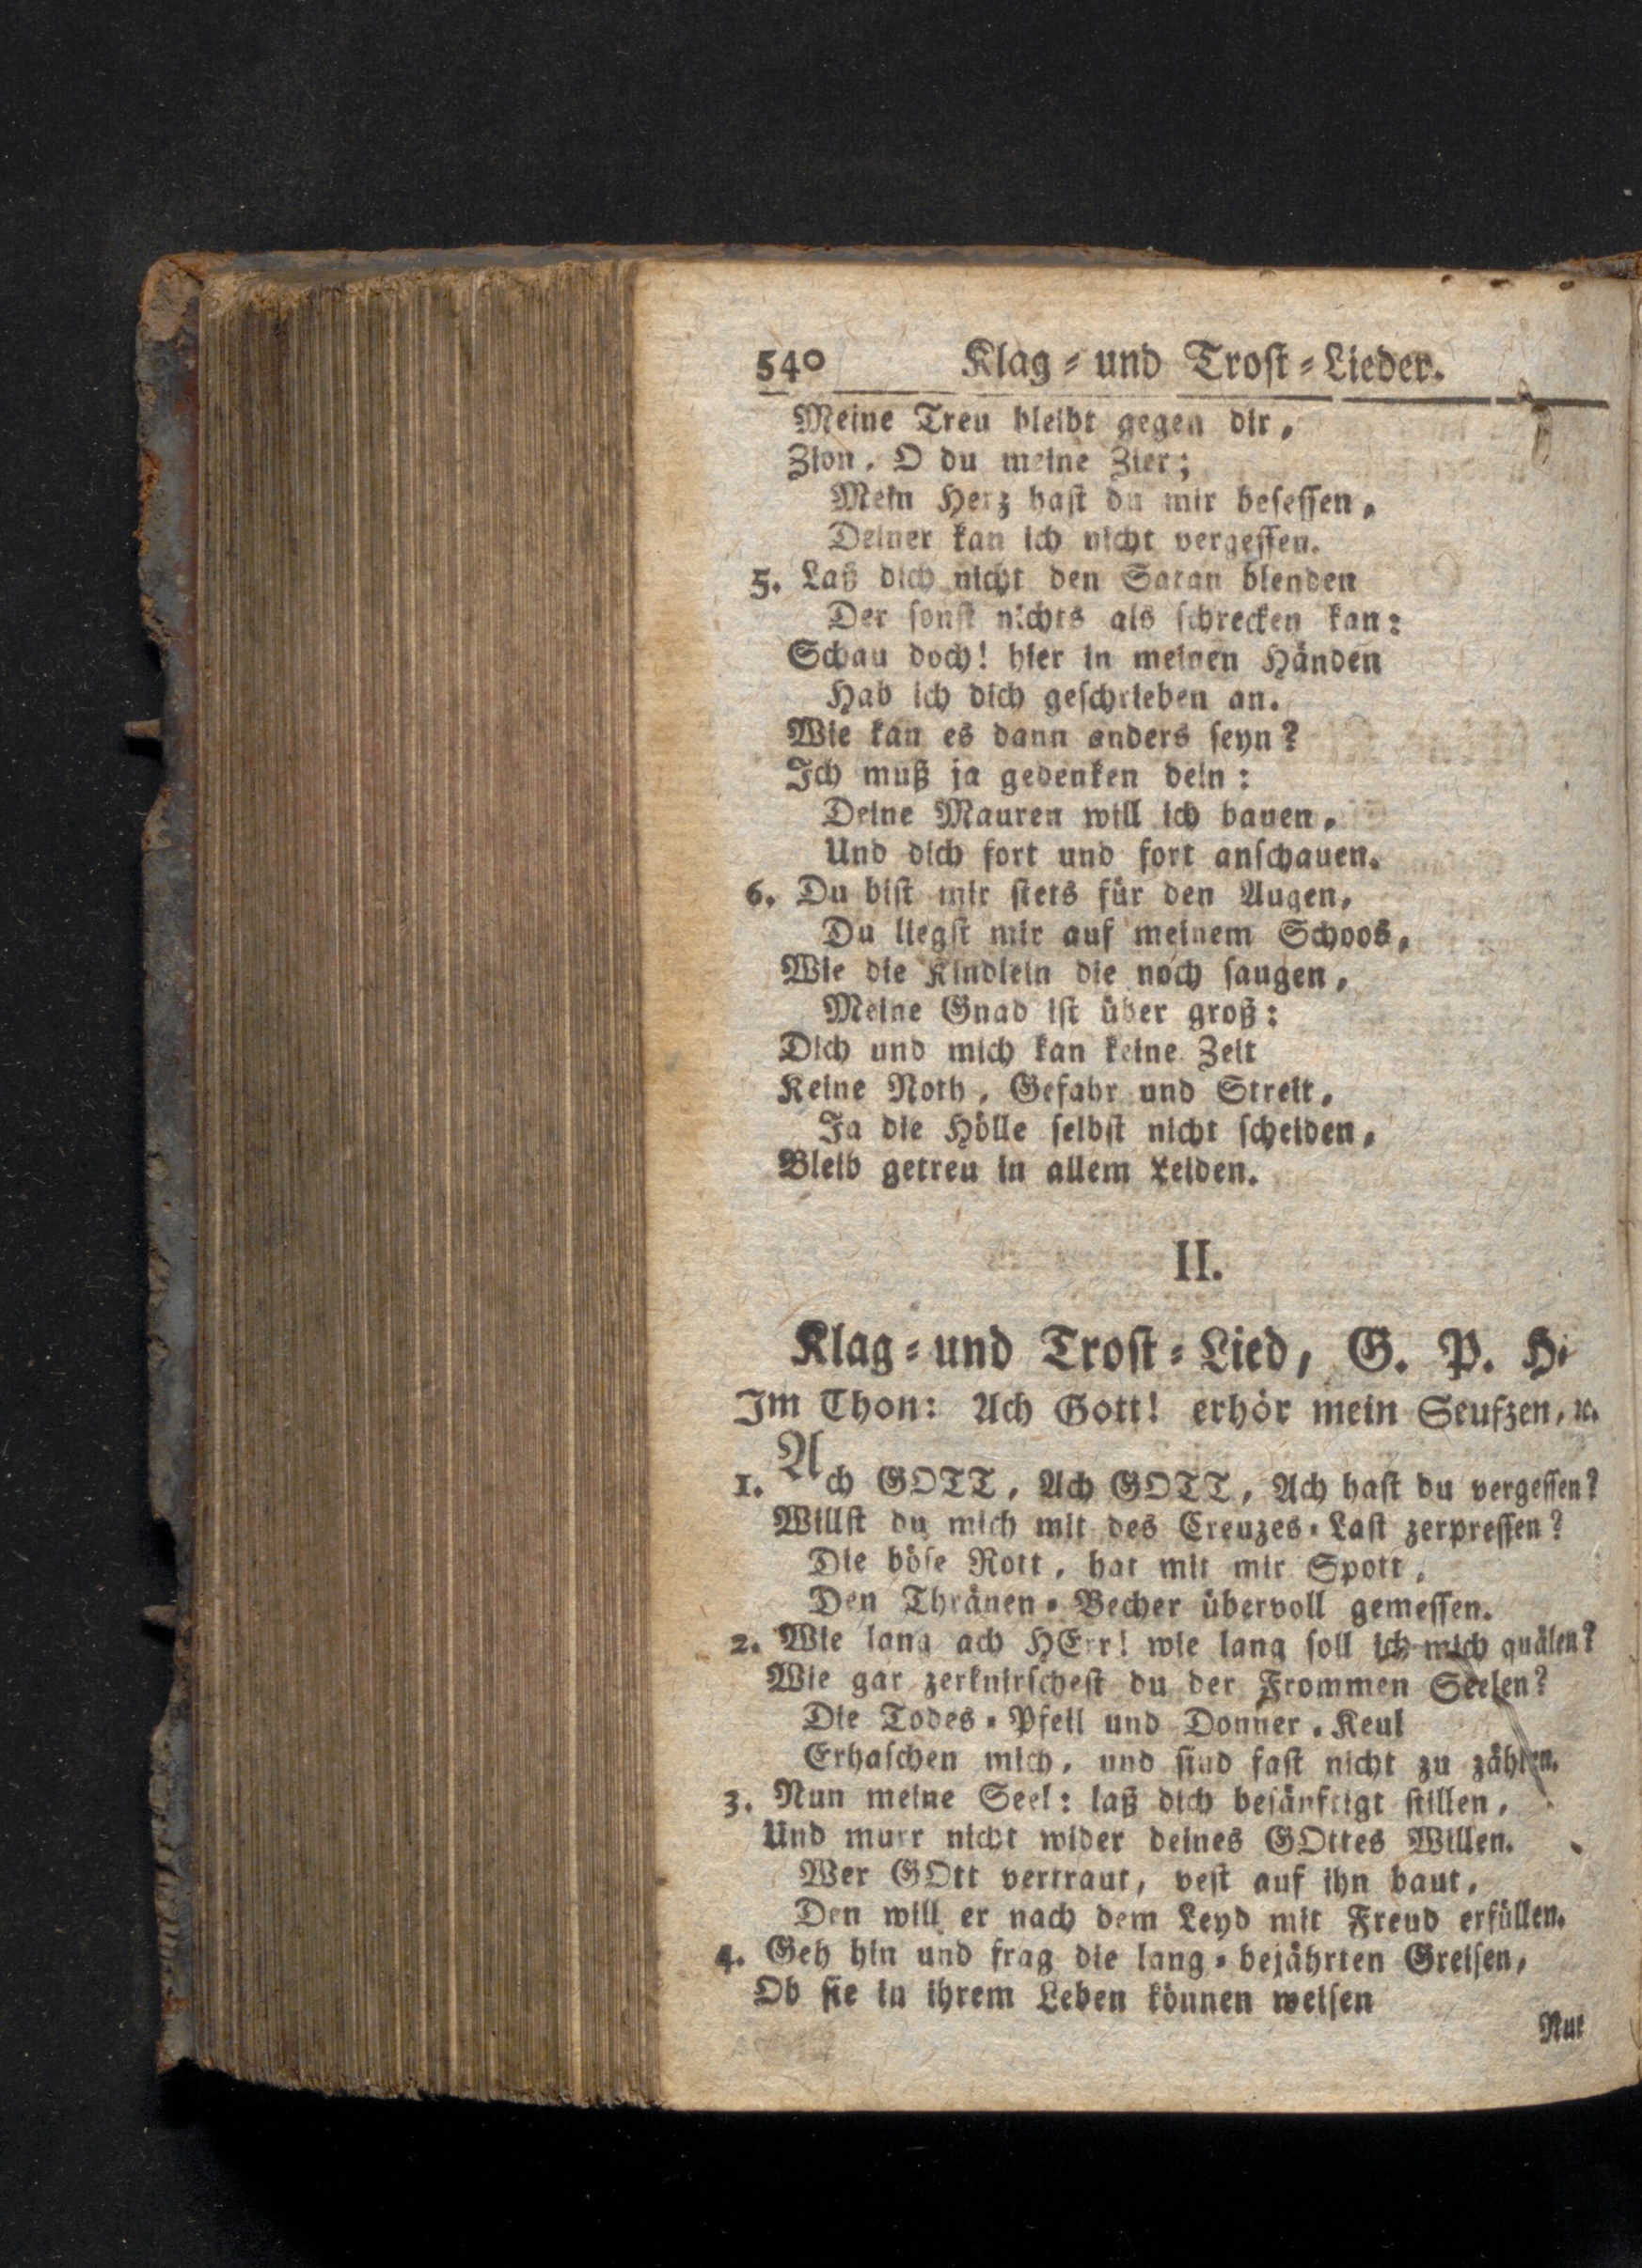 540 Klag- und Trost-Lieder.
Meine Treu bleibt gegen dir,
Zion, O du meine Zier;
Mein Herz hast du mir besessen,
Deiner kan ich nicht vergessen.
5. Laß dich nicht den Satan blenden
Der sonst nichts als schrecken kan:
Schau doch! hier in meinen Händen
Hab ich dich geschrieben an.
Wie kan es dann anders seyn?
Ich muß ja gedenken dein:
Deine Mauren will ich bauen,
Und dich fort und fort anschauen.
6. Du bist mir stets für den Augen,
Du liegst mir auf meinem Schoos,
Wie die Kindlein die noch saugen,
Meine Gnad ist über groß:
Dich und mich kan keine Zeit
Keine Noth, Gefahr und Streit,
Ja die Hölle selbst nicht scheiden,
Bleib getreu in allem Leiden.
II.
Klag- und Trost-Lied, G. P. H.
Im Thon: Ach Gott! erhör mein Seufzen, ꝛc.
1. Ach GOTT, Ach GOTT, Ach hast du vergessen?
Willst du mich mit des Creuzes-Last zerpressen?
Die böse Rott, hat mit mir Spott,
Den Thränen-Becher übervoll gemessen.
2. Wie lang ach HErr! wie lang soll ich mich quälen?
Wie gar zerknirschest du der Frommen Seelen?
Die Todes-Pfeil und Donner-Keul
Erhaschen mich, und sind fast nicht zu zählen.
3. Nun meine Seel: laß dich besänftigt stillen,
Und murr nicht wider deines GOttes Willen.
Wer GOtt vertraut, vest auf ihn baut,
Den will er nach dem Leyd mit Freud erfüllen.
4. Geh hin und frag die lang-bejährten Greisen,
Ob sie in ihrem Leben können weisen
Nur